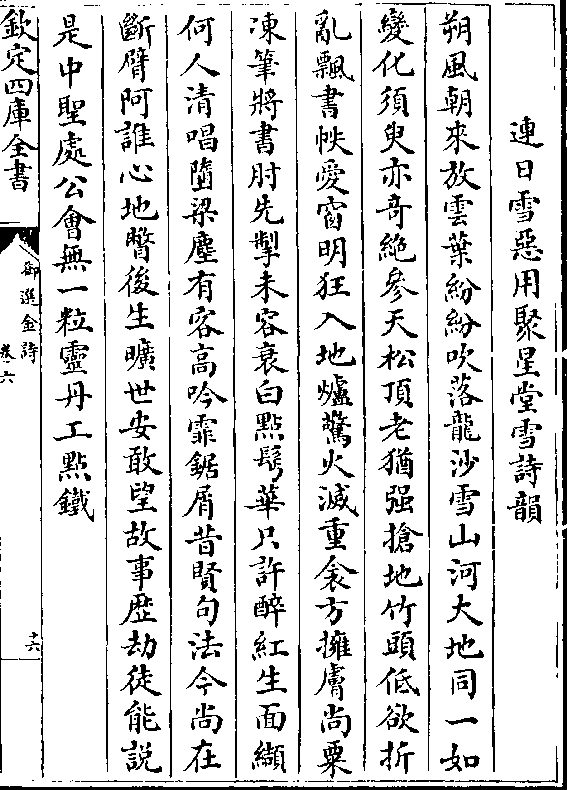 連日雪惡用聚星堂雪詩韻
朔風朝來放雲葉紛紛吹落龍沙雪山河大地同一如
變化須臾亦奇絶參天松頂老猶强搶地竹頭低欲折
亂飄書帙愛窗明狂入地爐驚火滅重衾方擁膚尚粟
凍筆將書肘先掣未容衰白點鬂華只許醉紅生面纈
何人清唱墮梁塵有客高吟霏鋸屑昔賢句法今尚在
斷臂阿誰心地瞥後生曠世安敢望故事歴劫徒能說
是中聖處公會無一粒靈丹工點鐵
欽定四庫全書
御選金詩
卷六
十六